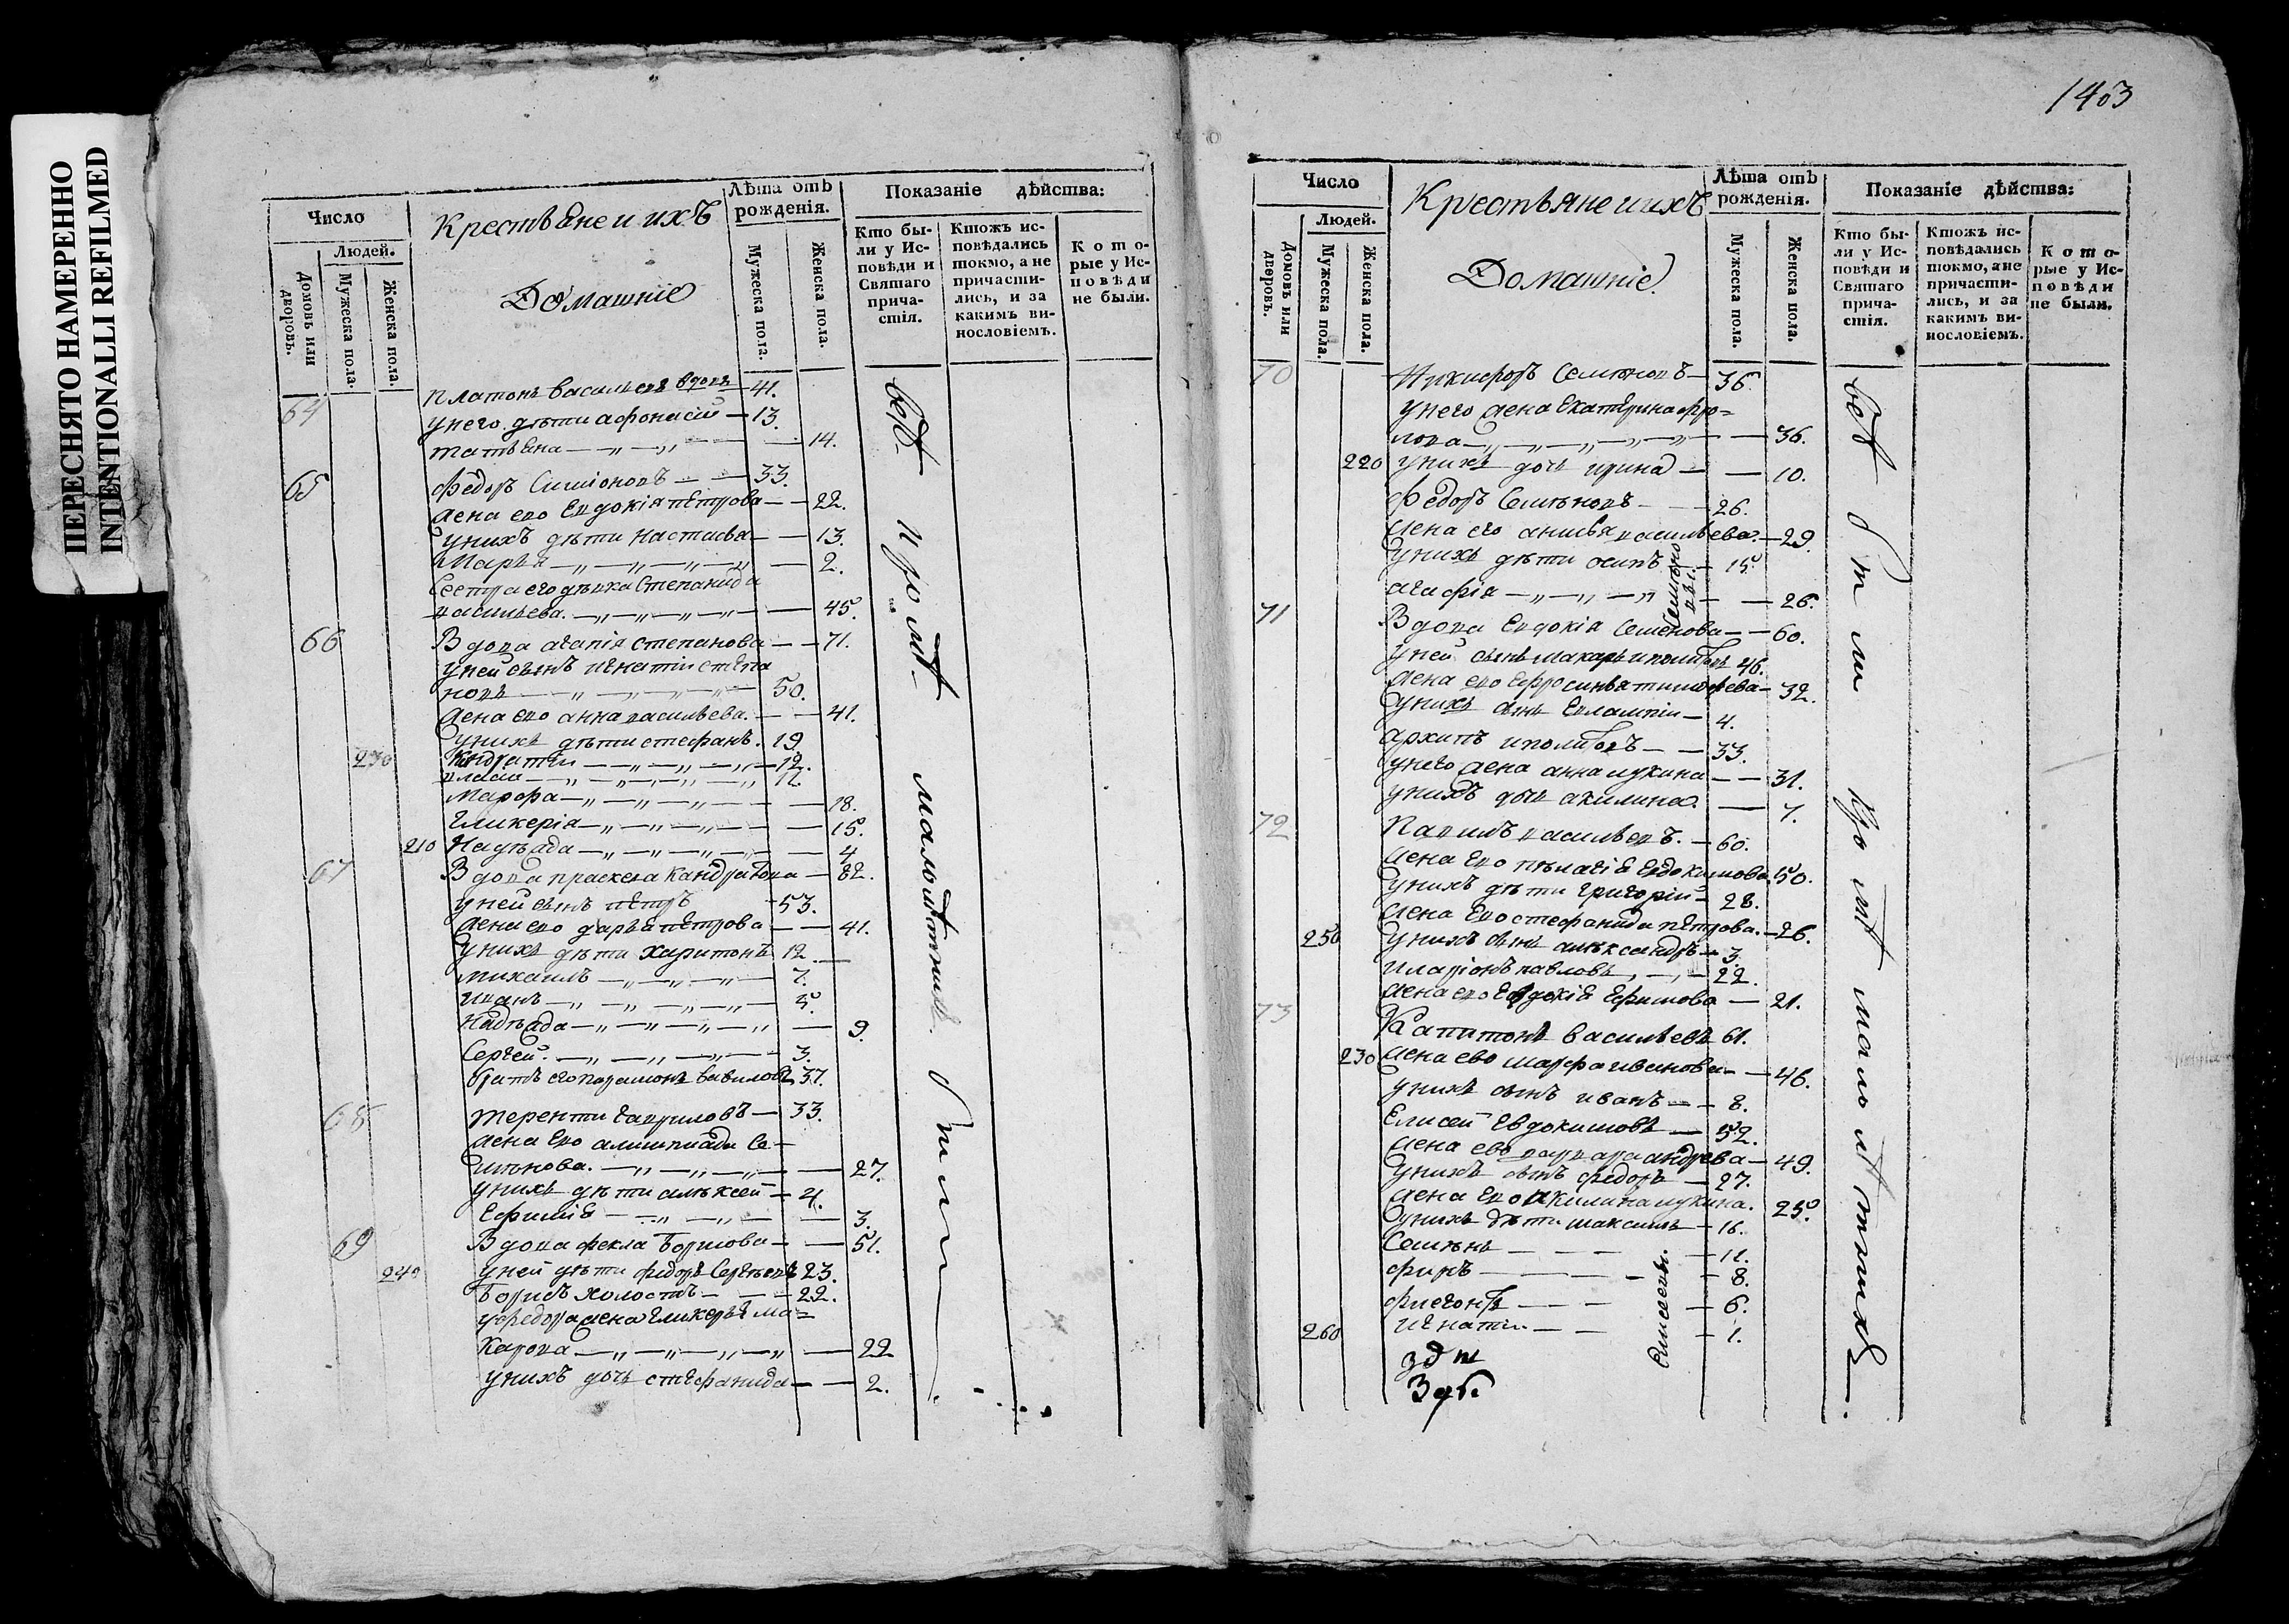 ПЕРЕСНЯТО НАМЕРЕННО
INTENTIONALLI REFILMED
Число
Людей.
Домовъ или дворовъ.
Мужеска пола.
Женска пола.
Крестьяне и ихъ
Домашніе
Лѣта отъ рожденія.
Мужеска пола.
Женска пола.
Показаніе дѣйства:
Кто были у Исповѣди и Святаго причастія.
Ктожъ исповѣдались токмо, а не причастились, и за какимъ винословіемъ.
Которые у Исповѣди не были.
64 Платонъ васильевъ вдовъ 41.
у него дѣти афонасій 13.
татьяна 14.
65 Федоръ Симіоновъ 33.
жена ево Евдокія пЕтрова 22.
у нихъ дѣти настасья 13.
Марья 2.
Сестра его дѣвка Степанида
васильева. 45.
66 Вдова агапія степанова 71.
у ней сынъ игнатіи степа
новъ 50.
жена ево анна васильева. 41.
у нихъ дѣти стефанъ. 19.
230 Кондратіи 12.
власіи 12.
Марфа 18.
Гликерія 15.
210 Надѣжда 4
67 Вдова праскева Кандратова 82.
у ней сынъ пЕтръ 53.
жена ево дарья пЕтрова 41.
у нихъ дѣти Харитонъ 12.
михаилъ 7.
иванъ 5.
надѣжда 9.
Сергей. 3.
братъ его парамонъ вавиловъ 37.
68 терентіи гавриловъ 33.
жена Ево алимпиада Се-
мѣнова. 27.
у нихъ дѣти алѣксей 4.
Ефимія 3.
69 Вдова фекла Борисова 51.
240 у ней дѣти федоръ Сергѣевъ 23.
Борисъ холостъ 22.
у федора жена гликерья ма=
карова 22
у нихъ дочь стефанида 2.
всѣ кромѣ малолѣтнихъ были
1403
Число
Людей.
Домовъ или дворовъ.
Мужеска пола.
Женска пола.
Крестьяне и ихъ
Домашніе.
Лѣта отъ рожденія.
Мужеска пола.
Женска пола.
Показаніе дѣйства:
Кто были у Исповѣди и Святаго причастія.
Ктожъ исповѣдались токмо, а не причастились, и за какимъ винословіемъ.
Которые у Исповѣди не были.
70 Никифоръ Семѣновъ 36.
у него жена Екатерина фро=
лова 36.
220 у нихъ дочь ирина 10.
федоръ Семѣновъ 26.
жена его анисья васильева. 29.
у нихъ дѣти осипъ 15.
агафія 26.
71 Вдова Евдокія Семѣнова 60.
у ней сынъ макаръ иполитовъ 46.
жена ево Ефросинья тимофева 32.
у нихъ сынъ Евлампіи 4.
архипъ иполитовъ 33.
у него жена анна лукина 31.
у нихъ дочь акилина. 7.
72 Павилъ васильевъ. 60.
жена Ево пѣлагія Евдокимова 50.
у нихъ дѣти григорій 28.
жена Ево стефанида пЕтрова. 26.
250 у нихъ сынъ алѣксандръ 3.
иларіонъ павловъ 22.
жена ево Евдокія Ефимова 21.
73 Капитонъ васильевъ 61.
230 жена ево марфа иванова 46.
у нихъ сынъ иванъ 8.
Елисей Евдокимовъ 52.
жена ево варвара андрева 49.
у нихъ сынъ федоръ 27.
жена Ево акилина лукина. 25.
у нихъ дѣти максимъ 16.
Семѣнъ 11.
фирсъ 8.
флегонтъ 6.
260 игнатіи 1.
Елисеевы.
всѣ были кромѣ малолѣтнихъ